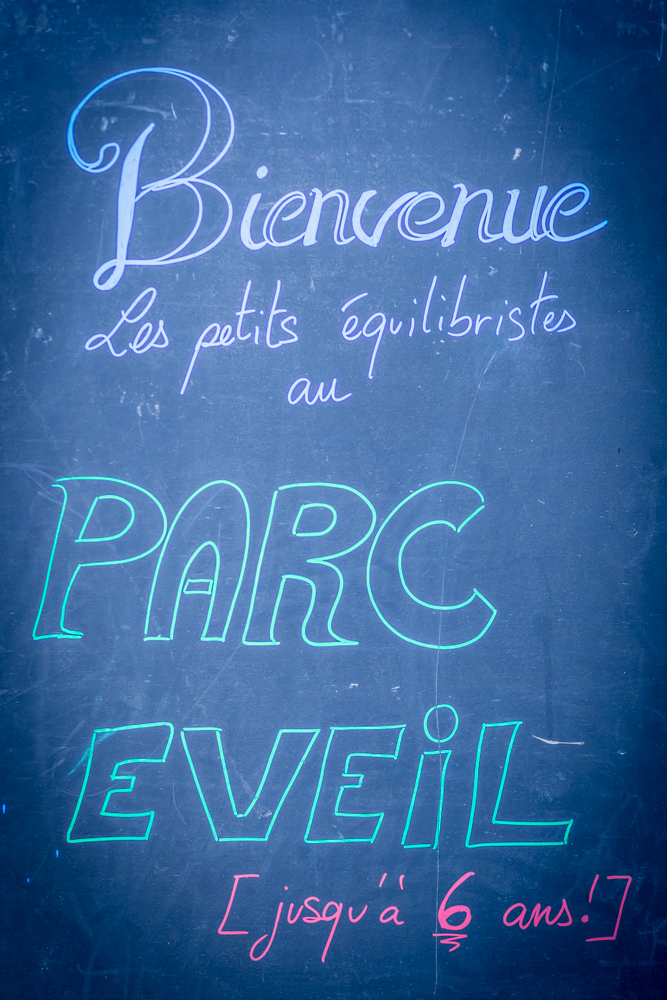 Bienvenue
Les petits équilibristes
au
PARC
EVEiL
[jusqu'à 6 ans!]